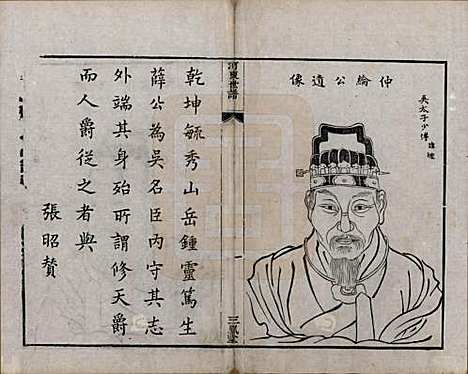 仲綸公遺像
吳太子少傅 諱瑩
河東世譜
一
三鳳堂
乾坤毓秀山岳鍾靈篤生
薛公為吳名臣內守其志
外端其身殆所謂修天爵
而人爵從之者與
張昭贊